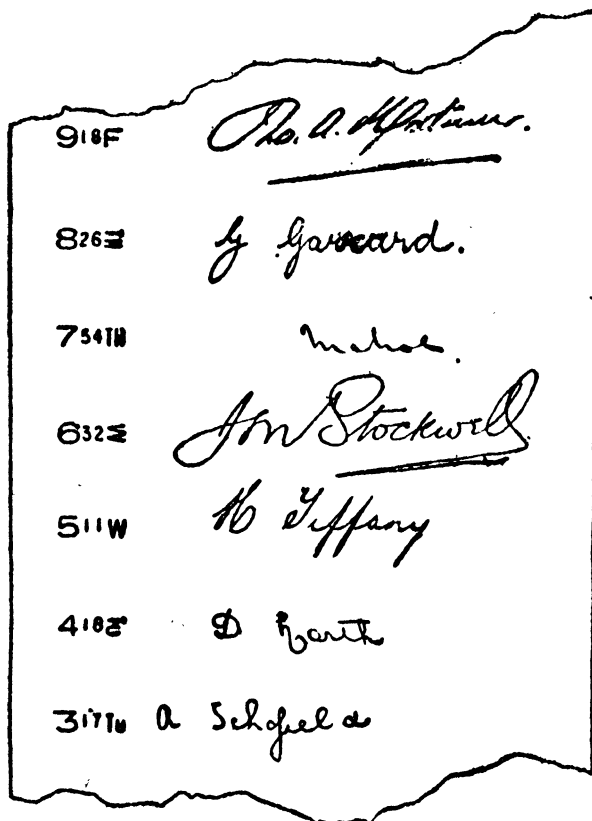 918F Tho. A. Mortimer.
826 G Garrard.
754TH
632 Jn Stockwell
511W H Tiffany
418 D Earth
317TU A Schofield